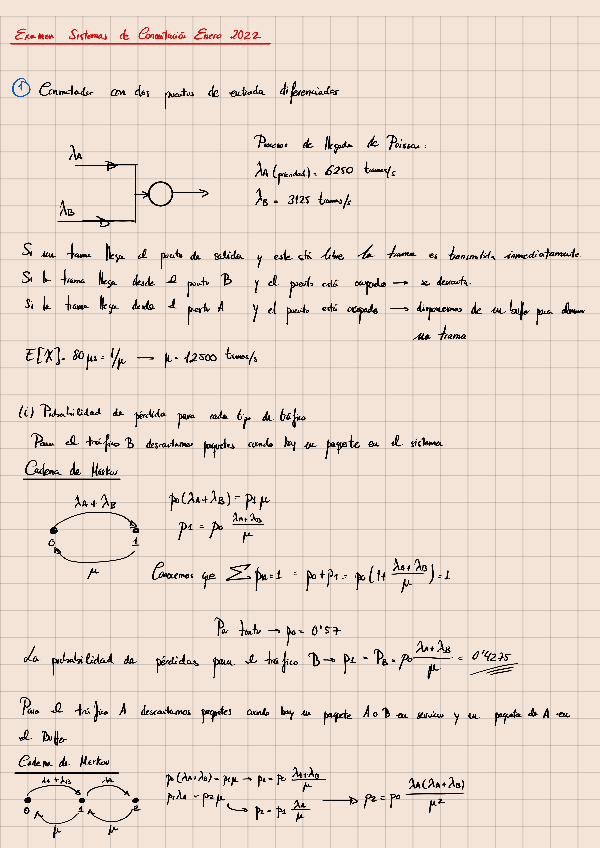 Examen Sistemas de Conmutación Enero 2022
① Conmutador con dos puertos de entrada diferenciados
Procesos de llegada de Poisson:
λA
λA (prioridad) = 6250 tramas/s
λB = 3125 tramas/s
λB
Si una trama llega al puerto de salida y este está libre la trama es transmitida inmediatamente
Si la trama llega desde el puerto B y el puerto está ocupado → se descarta.
Si la trama llega desde el puerto A y el puerto está ocupado → disponemos de un buffer para almacenar
una trama
E[X] = 80 μs = 1/μ → μ = 12500 tramas/s
(i) Probabilidad de pérdida para cada tipo de tráfico
Para el tráfico B descartamos paquetes cuando hay un paquete en el sistema
Cadena de Markov
λA + λB
p0(λA+λB) = p1 μ
p1 = p0 (λA+λB)/μ
0 1
μ
Conocemos que Σ pn = 1 = p0 + p1 = p0 (1 + (λA+λB)/μ) = 1
Por tanto → p0 = 0'57
La probabilidad de pérdidas para el tráfico B → p1 = PB = p0 (λA+λB)/μ = 0'4275
Para el tráfico A descartamos paquetes cuando hay un paquete A o B en servicio y un paquete de A en
el Buffer
Cadena de Markov
λA + λB λA
p0(λA+λB) = p1 μ → p1 = p0 (λA+λB)/μ
p1 λA = p2 μ
p2 = p1 λA/μ → p2 = p0 λA(λA+λB)/μ²
0 1 2
μ μ